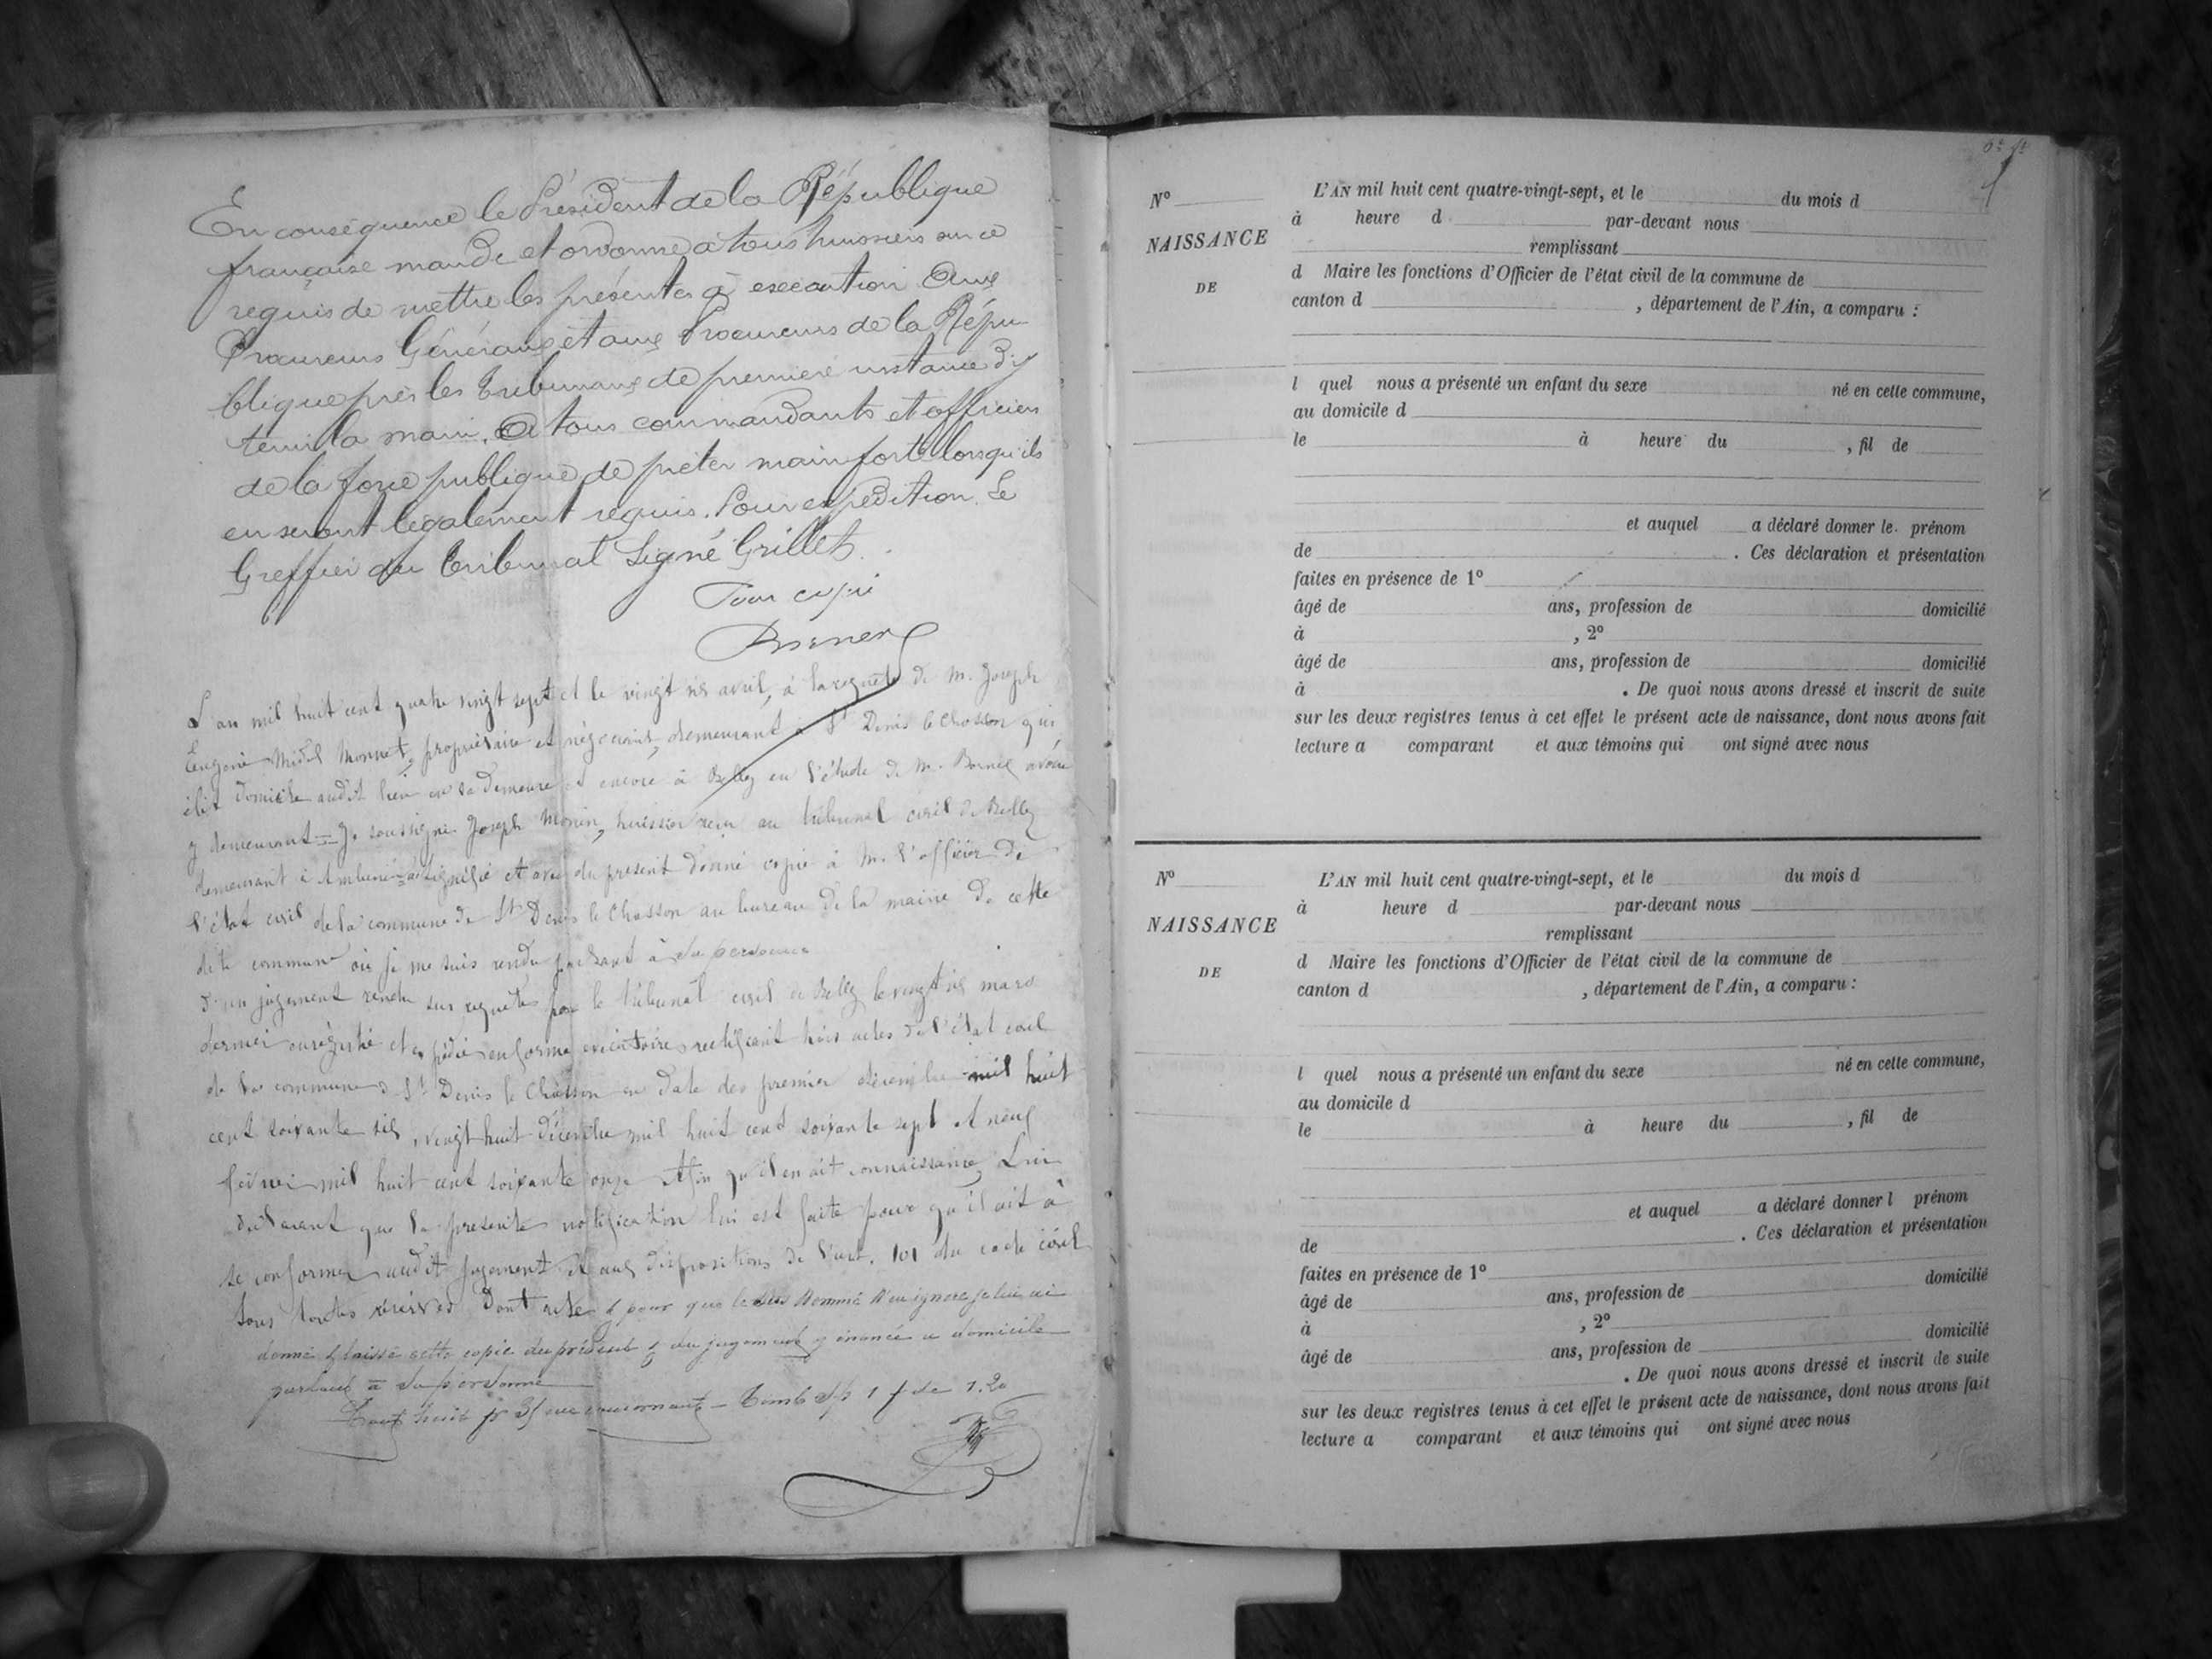 En conséquence le Président de la République
française mande et ordonne à tous huissiers sur ce
requis de mettre les présentes à exécution Aux
Procureurs Généraux et aux Procureurs de la Répu
blique près les Tribunaux de première instance d'y
tenir la main. A tous commandants et officiers
de la force publique de prêter main forte lorsqu'ils
en seront légalement requis. Pour expédition. Le
Greffier du Tribunal Signé Grillet.
Pour copie
L'an mil huit cent quatre vingt sept et le vingt six avril, à la requête de M. Joseph
Monnet, propriétaire et négociant, demeurant à St Denis le Chosson qui
élit domicile audit lieu en sa demeure et encore à Belley en l'étude de M. avoué
y demeurant = Je soussigné Joseph Monin, huissier reçu au tribunal civil de Belley
demeurant à signifié et avec du présent donné copie à M. l'officier de
l'état civil de la commune de St Denis le Chosson au bureau de la mairie de cette
dite commune où je me suis rendu parlant à sa personne
d'un jugement rendu sur requête par le tribunal civil de Belley le vingt six mars
dernier enregistré et expédié en forme exécutoire rectifiant trois actes de l'état civil
de la commune de St Denis le Chosson en date des premier décembre mil huit
cent soixante six, vingt huit décembre mil huit cent soixante sept et neuf
février mil huit cent soixante onze Afin qu'il en ait connaissance, Lui
déclarant que la présente notification lui est faite pour qu'il ait à
se conformer audit jugement et aux dispositions de l'art. 101 du code civil
sous toutes réserves Dont acte & pour que le sus nommé n'en ignore je lui ai
donné & laissé cette copie du présent & du jugement y énoncé à domicile
parlant à sa personne
N° L'AN mil huit cent quatre-vingt-sept, et le du mois d
à heure d par-devant nous
NAISSANCE remplissant
d Maire les fonctions d'Officier de l'état civil de la commune de
DE canton d , département de l'Ain, a comparu :
l quel nous a présenté un enfant du sexe né en cette commune,
au domicile d
le à heure du , fil de
et auquel a déclaré donner le prénom
de . Ces déclaration et présentation
faites en présence de 1°
âgé de ans, profession de domicilié
à , 2°
âgé de ans, profession de domicilié
à . De quoi nous avons dressé et inscrit de suite
sur les deux registres tenus à cet effet le présent acte de naissance, dont nous avons fait
lecture a comparant et aux témoins qui ont signé avec nous
N° L'AN mil huit cent quatre-vingt-sept, et le du mois d
à heure d par-devant nous
NAISSANCE remplissant
d Maire les fonctions d'Officier de l'état civil de la commune de
DE canton d , département de l'Ain, a comparu :
l quel nous a présenté un enfant du sexe né en cette commune,
au domicile d
le à heure du , fil de
et auquel a déclaré donner l prénom
de . Ces déclaration et présentation
faites en présence de 1°
âgé de ans, profession de domicilié
à , 2°
âgé de ans, profession de domicilié
. De quoi nous avons dressé et inscrit de suite
sur les deux registres tenus à cet effet le présent acte de naissance, dont nous avons fait
lecture a comparant et aux témoins qui ont signé avec nous